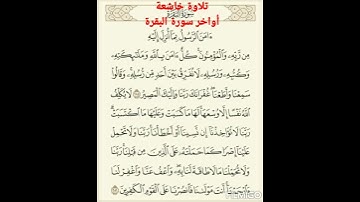 تلاوة خاشعة
سورة البقرة
أواخر سورة البقرة
ءَامَنَ ٱلرَّسُولُ بِمَآ أُنزِلَ إِلَيْهِ
مِن رَّبِّهِۦ وَٱلْمُؤْمِنُونَ ۚ كُلٌّ ءَامَنَ بِٱللَّهِ وَمَلَٰٓئِكَتِهِۦ
وَكُتُبِهِۦ وَرُسُلِهِۦ لَا نُفَرِّقُ بَيْنَ أَحَدٍ مِّن رُّسُلِهِۦ ۚ وَقَالُوا۟
سَمِعْنَا وَأَطَعْنَا ۖ غُفْرَانَكَ رَبَّنَا وَإِلَيْكَ ٱلْمَصِيرُ ۝ لَا يُكَلِّفُ
ٱللَّهُ نَفْسًا إِلَّا وُسْعَهَا ۚ لَهَا مَا كَسَبَتْ وَعَلَيْهَا مَا ٱكْتَسَبَتْ ۗ
رَبَّنَا لَا تُؤَاخِذْنَآ إِن نَّسِينَآ أَوْ أَخْطَأْنَا ۚ رَبَّنَا وَلَا تَحْمِلْ
عَلَيْنَآ إِصْرًا كَمَا حَمَلْتَهُۥ عَلَى ٱلَّذِينَ مِن قَبْلِنَا ۚ رَبَّنَا
وَلَا تُحَمِّلْنَا مَا لَا طَاقَةَ لَنَا بِهِۦ ۖ وَٱعْفُ عَنَّا وَٱغْفِرْ لَنَا
وَٱرْحَمْنَآ ۚ أَنتَ مَوْلَىٰنَا فَٱنصُرْنَا عَلَى ٱلْقَوْمِ ٱلْكَٰفِرِينَ ۝